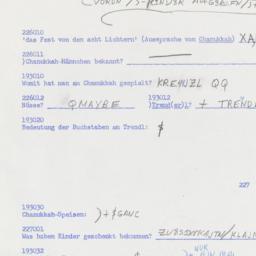 226010
'das Fest von den acht Lichtern' (Aussprache von Chanukkah) XA
226011
)Chanukkah-Männchen bekannt?
193010
Womit hat man an Chanukkah gespielt? KREMZL QQ
226012 193012
Nüsse? QMAYBE )Trend(er)l? + TREND
193020
Bedeutung der Buchstaben am Trendl: $
227
193030
Chanukkah-Speisen: )+$GANC
227001
Was haben Kinder geschenkt bekommen?
193032
NUR